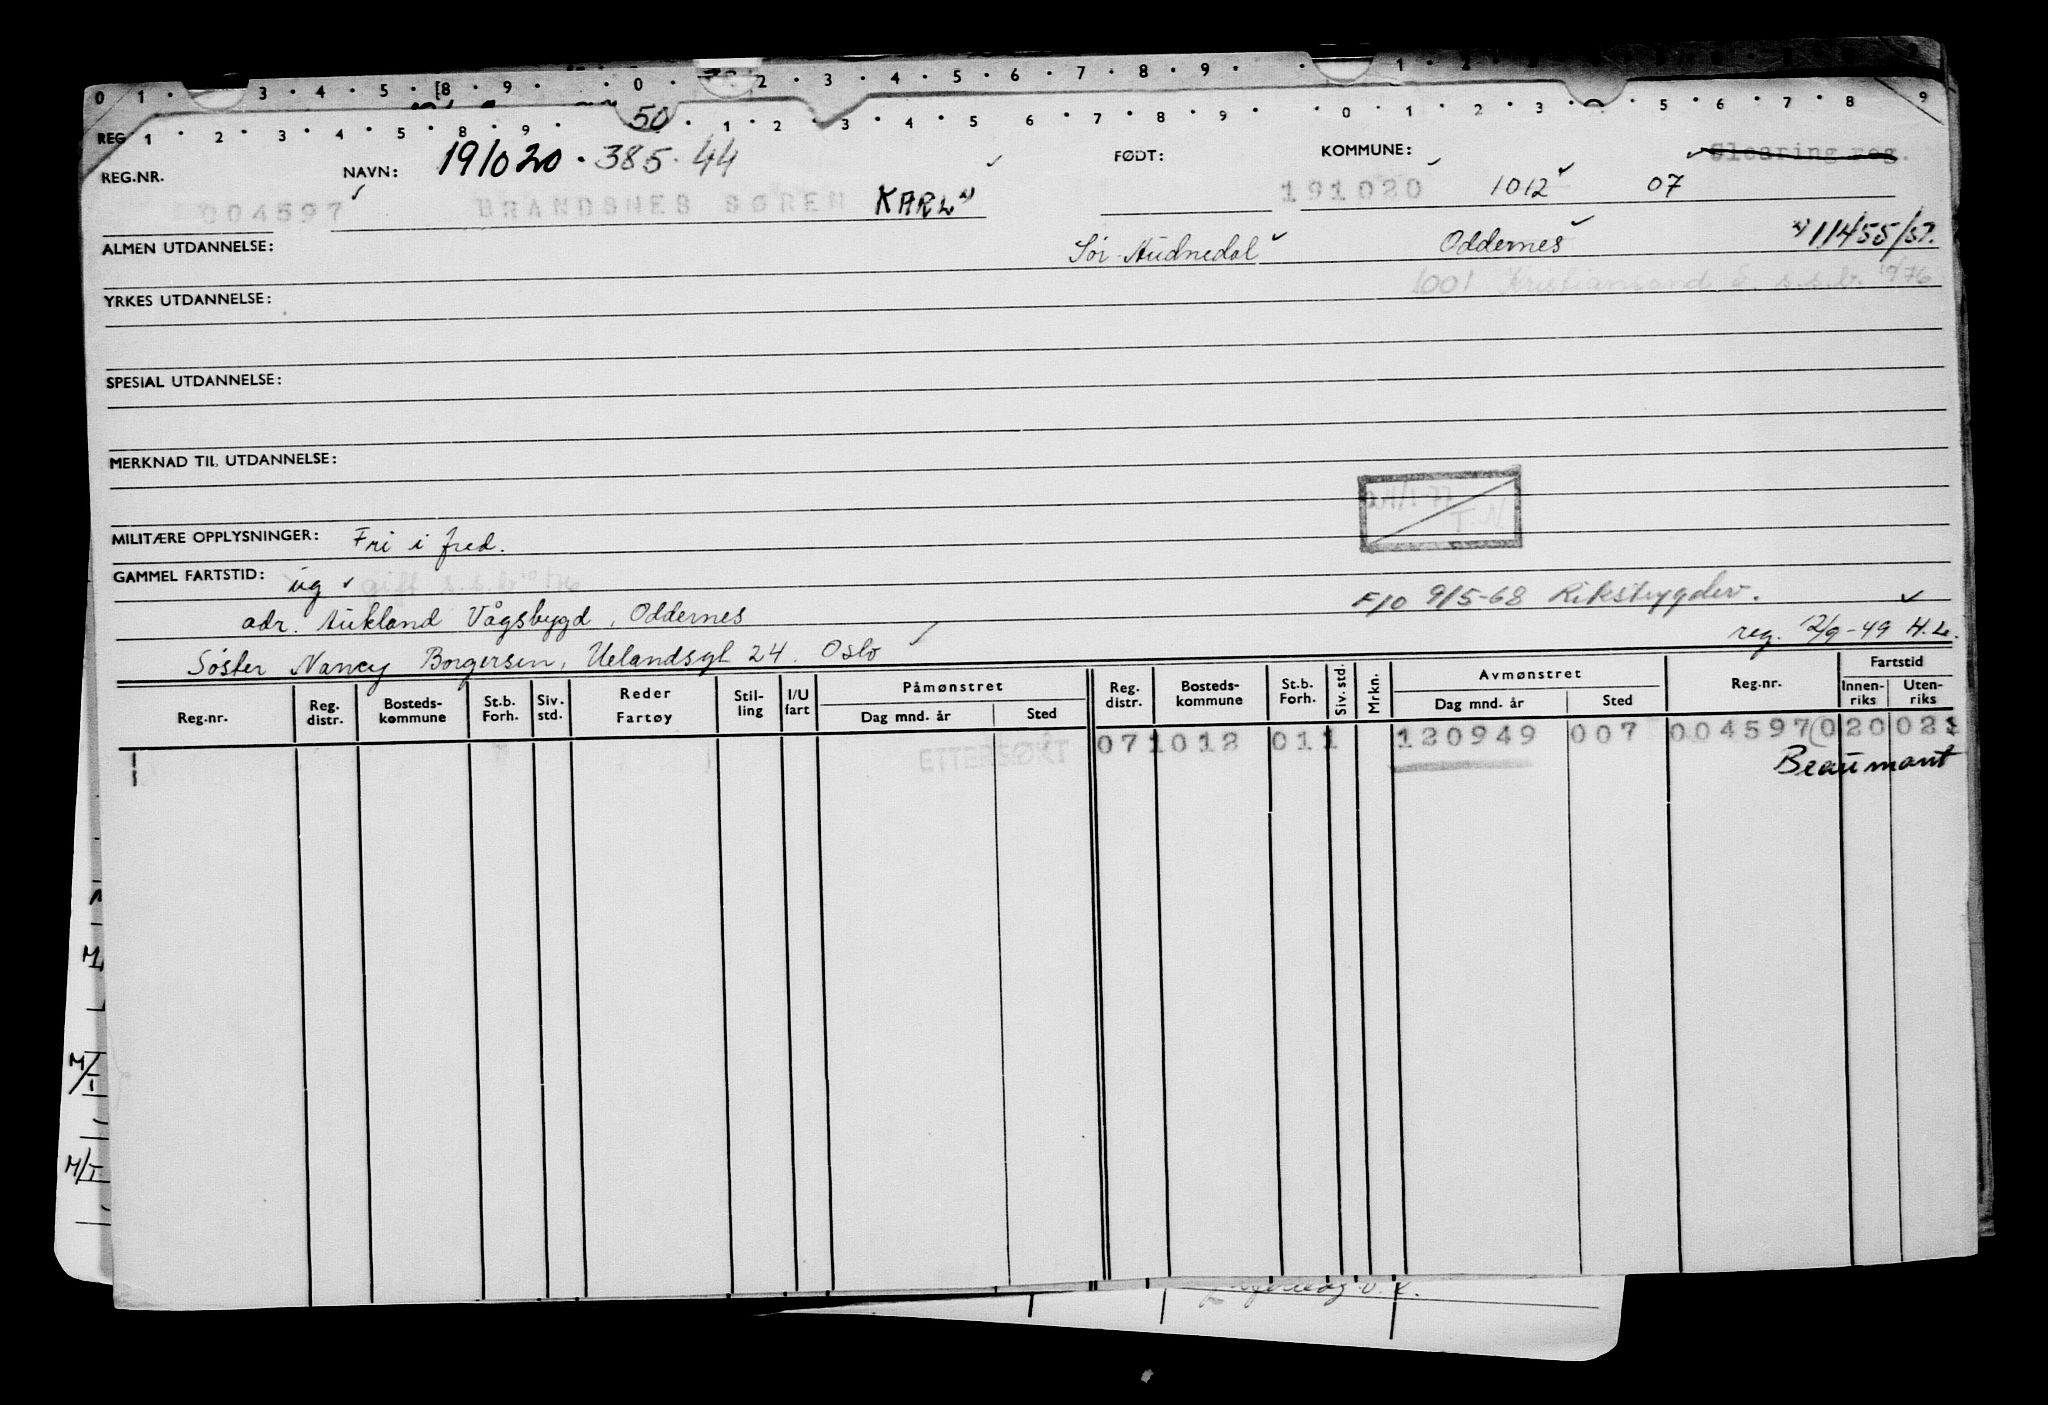 0 1 · 3 · 4 · 5 · 8 · 9 · · 0 · 2 · 3 · 4 · 5 · 6 · 7 · 8 · 9 · · 1 · 2 · 3 9
REG 1 · 2 · 3 · 4 · 5 · 8 · 9 · 50 · 1 · 2 · 3 · 4 · 5 6 · 7 · 8 · 9 · · 0 · 1 · 2 · 3 · 5 · 6 · 7 · 8
REG.NR. NAVN: 191020 · 385 · 44 FØDT: KOMMUNE: Clearing reg.
004597 BRANDSNES SØREN KARL x) 191020 1012 07
ALMEN UTDANNELSE: Sør-Audnedal Oddernes x) 11455/57.
YRKES UTDANNELSE: 1001 Kristiansand S. s.s.b. 10/76
SPESIAL UTDANNELSE:
MERKNAD TIL UTDANNELSE:
T.N
MILITÆRE OPPLYSNINGER: Fri i fred.
GAMMEL FARTSTID: ug gift s.s.br 10/76
F/O 9/5-68 Rikstrygdev.
adr. Aukland Vågsbygd, Oddernes
reg. 12/9-49 H.L.
Søster Nancy Borgersen, Uelandsgt 24. Oslo
Reg.nr. Reg. distr. Bosteds-kommune St.b. Forh. Siv. std. Reder Fartøy Stil-ling I/U fart Påmønstret Dag mnd. år Sted Reg. distr. Bosteds-kommune St.b. Forh. Siv. std. Mrkn. Avmønstret Dag mnd. år Sted Reg.nr. Fartstid Innen-riks Uten-riks
ETTERSØKT 07 1012 011 1 120949 007 004597 020 021
Beaumont
M/T
M/T